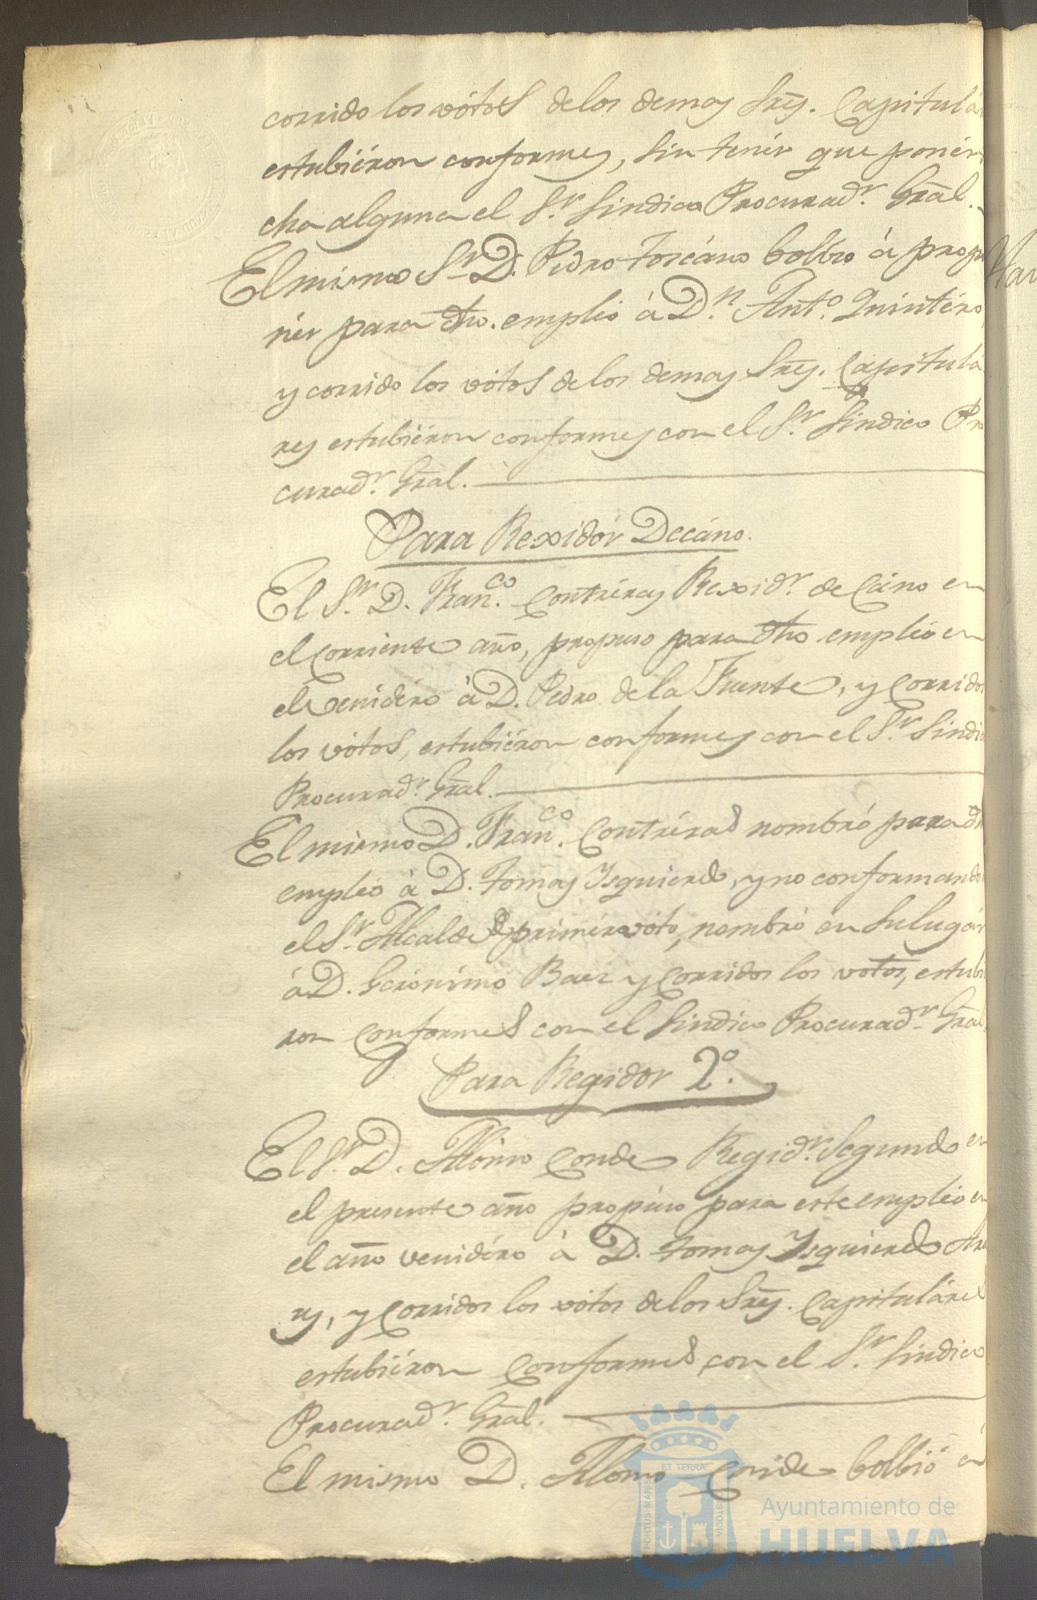 corrido los vótos de los demas Sres. Capitulá
estubiéron conformes, sin tenér que ponér
cha alguna el Sr. Sindico Procuradr. Gral.
El mismo Sr. D. Pedro toscáno bolbió á propo
nér para dho. empléo á Dn. Anto. Quintéro
y corrido los vótos de los demas Sres. Capitulá
res estubiéron conformes con el Sr. Sindico Pro
curadr. Gral.
Para Rexidór Decáno.
El Sr. D. Franco. Contréras Rexidr. decáno en
el corriente año, propuso para dho empléo en
el venidéro á D. Pedro de la Fuente, y corridos
los vótos, estubiéron conformes con el Sr. Sindi
Procuradr. Gral.
El mismo D. Franco. Contréras nombró para dh
empléo á D. tomas Ysquierdo, y no conformando
el Sr. Alcalde de primér vóto, nombró en su lugár
á D. Gerónimo Baez y corridos los votos, estubi
ron conformes con el Sindico Procuradr. Gral
Para Regidor 2o.
El Sr. D. Alónso Conde Regidr. Segundo en
el presente año propúso para este empléo en
el año venidéro á D. tomas Ysquierdo
y corridos los votos de los Sres. Capituláres
estubiéron conformes con el Sr. Sindico
Procuradr. Gral.
El mismo D. Alonso Conde bolbió á
Ayuntamiento de
HUELVA
PORTUS MARIS
ET TERRÆ
CUSTODIA